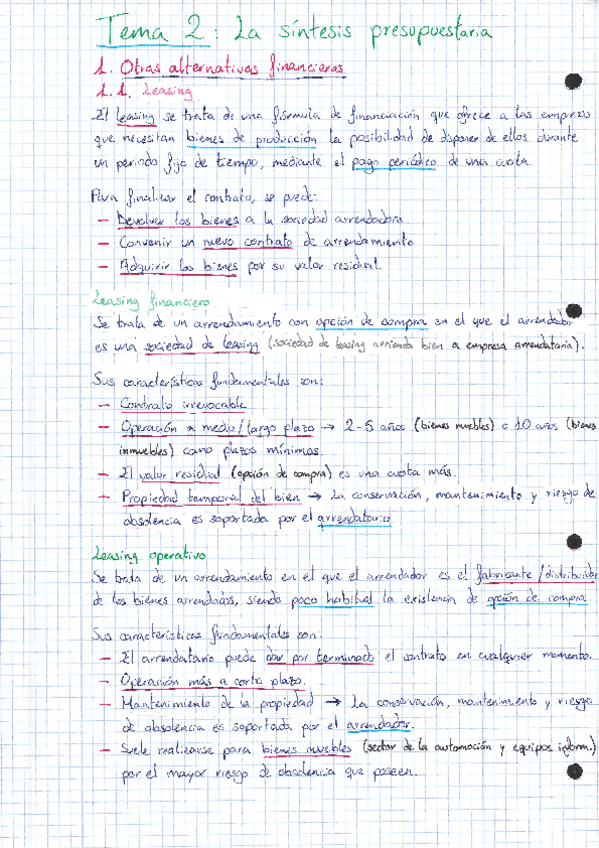 Tema 2: La síntesis presupuestaria
1. Otras alternativas financieras
1.1. Leasing
El leasing se trata de una fórmula de financiación que ofrece a las empresas
que necesitan bienes de producción la posibilidad de disponer de ellos durante
un periodo fijo de tiempo, mediante el pago periódico de una cuota.
Para finalizar el contrato, se puede:
— Devolver los bienes a la sociedad arrendadora
— Convenir un nuevo contrato de arrendamiento
— Adquirir los bienes por su valor residual.
Leasing financiero
Se trata de un arrendamiento con opción de compra en el que el arrendador
es una sociedad de leasing (sociedad de leasing arrienda bien a empresa arrendataria).
Sus características fundamentales son:
— Contrato irrevocable
— Operación a medio/largo plazo → 2-5 años (bienes muebles) o 10 años (bienes
inmuebles) como plazos mínimos.
— El valor residual (opción de compra) es una cuota más.
— Propiedad temporal del bien → La conservación, mantenimiento y riesgo de
obsolencia es soportada por el arrendatario
Leasing operativo
Se trata de un arrendamiento en el que el arrendador es el fabricante/distribuidor
de los bienes arrendados, siendo poco habitual la existencia de opción de compra
Sus características fundamentales son:
— El arrendatario puede dar por terminado el contrato en cualquier momento.
— Operación más a corto plazo.
— Mantenimiento de la propiedad → La conservación, mantenimiento y riesgo
de obsolencia es soportada por el arrendador.
— Suele realizarse para bienes muebles (sector de la automoción y equipos inform.)
por el mayor riesgo de obsolencia que poseen.